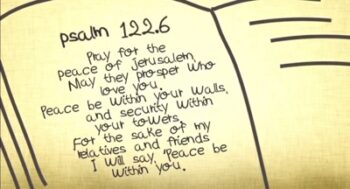 psalm 122.6
Pray for the
peace of Jerusalem,
May they prosper who
love you.
Peace be within your walls,
and security within
your towers.
For the sake of my
relatives and friends
I will say, "Peace be
within you.